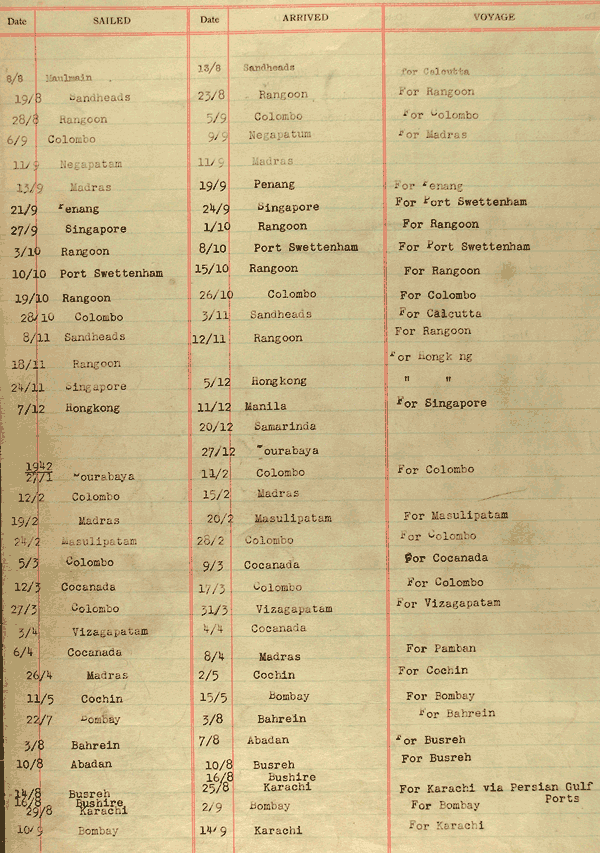 Date SAILED Date ARRIVED VOYAGE
13/8 Sandheads for Calcutta
8/8 Maulmain
19/8 Sandheads 23/8 Rangoon For Rangoon
28/8 Rangoon 5/9 Colombo For Colombo
6/9 Colombo 9/9 Negapatum For Madras
11/9 Negapatam 11/9 Madras
13/9 Madras 19/9 Penang For Penang
21/9 Penang 24/9 Singapore For Port Swettenham
27/9 Singapore 1/10 Rangoon For Rangoon
3/10 Rangoon 8/10 Port Swettenham For Port Swettenham
10/10 Port Swettenham 15/10 Rangoon For Rangoon
19/10 Rangoon 26/10 Colombo For Colombo
28/10 Colombo 3/11 Sandheads For Calcutta
8/11 Sandheads 12/11 Rangoon For Rangoon
18/11 Rangoon For Hongk ng
24/11 Singapore 5/12 Hongkong " "
7/12 Hongkong 11/12 Manila For Singapore
20/12 Samarinda
27/12 Sourabaya
1942
27/1 Sourabaya 11/2 Colombo For Colombo
12/2 Colombo 15/2 Madras
19/2 Madras 20/2 Masulipatam For Masulipatam
24/2 Masulipatam 28/2 Colombo For Colombo
5/3 Colombo 9/3 Cocanada For Cocanada
12/3 Cocanada 17/3 Colombo For Colombo
27/3 Colombo 31/3 Vizagapatam For Vizagapatam
3/4 Vizagapatam 4/4 Cocanada
6/4 Cocanada 8/4 Madras For Pamban
26/4 Madras 2/5 Cochin For Cochin
11/5 Cochin 15/5 Bombay For Bombay
22/7 Bombay 3/8 Bahrein For Bahrein
3/8 Bahrein 7/8 Abadan For Busreh
10/8 Abadan 10/8 Busreh For Busreh
16/8 Bushire
14/8 Busreh 25/8 Karachi For Karachi via Persian Gulf
16/8 Bushire Ports
29/8 Karachi 2/9 Bombay For Bombay
10/9 Bombay 14/9 Karachi For Karachi